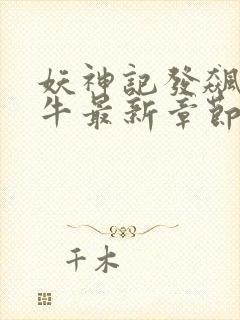 妖神記發飆
牛最新章節
千木